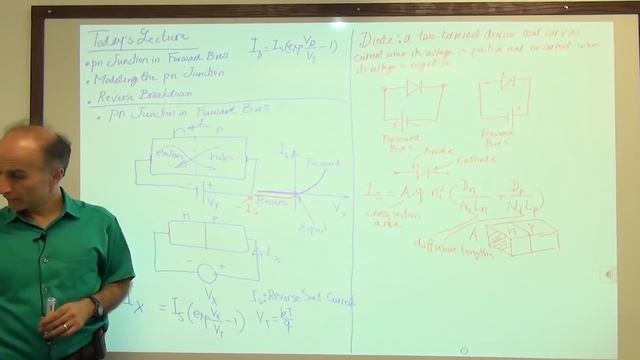 Today's Lecture
• pn Junction in Forward Bias
• Modeling the pn Junction
• Reverse Breakdown
I_D = I_S (exp V_D/V_T - 1)
• PN Junction in Forward Bias
n I P
electrons holes
- + V_T
I_S
I_x
Forward
Reverse
Equil
n P
I_x
- +
V_X
I_X = I_S (exp V_X/V_T - 1)
I_S: Reverse Sat Current
V_T = kT/q
Diode: a two-terminal device that carries
current when its voltage is positive and no current when
its voltage is negative.
+ -
Forward
Bias
- +
Reverse
Bias
Anode
Cathode
I_S = A.q.n_i² (D_n/N_A L_n + D_p/N_d L_p)
cross section
area
diffusion lengths
A n P